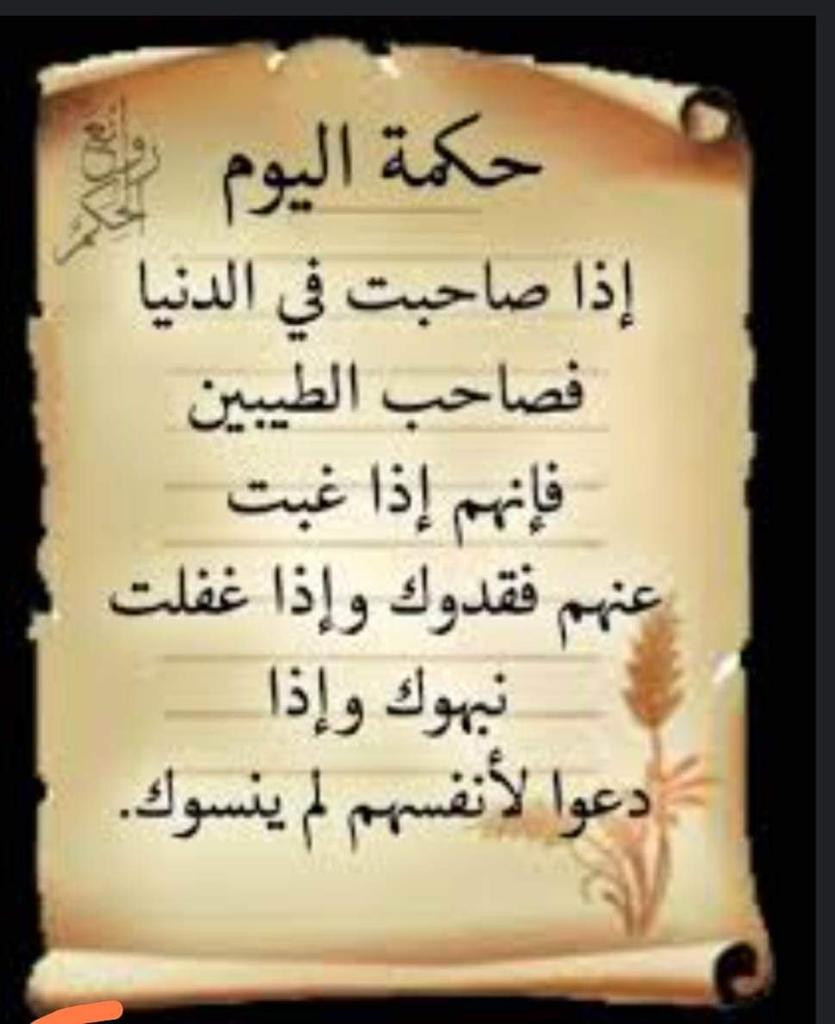 حكمة اليوم
إذا صاحبت في الدنيا
فصاحب الطيبين
فإنهم إذا غبت
عنهم فقدوك وإذا غفلت
نبهوك وإذا
دعوا لأنفسهم لم ينسوك.